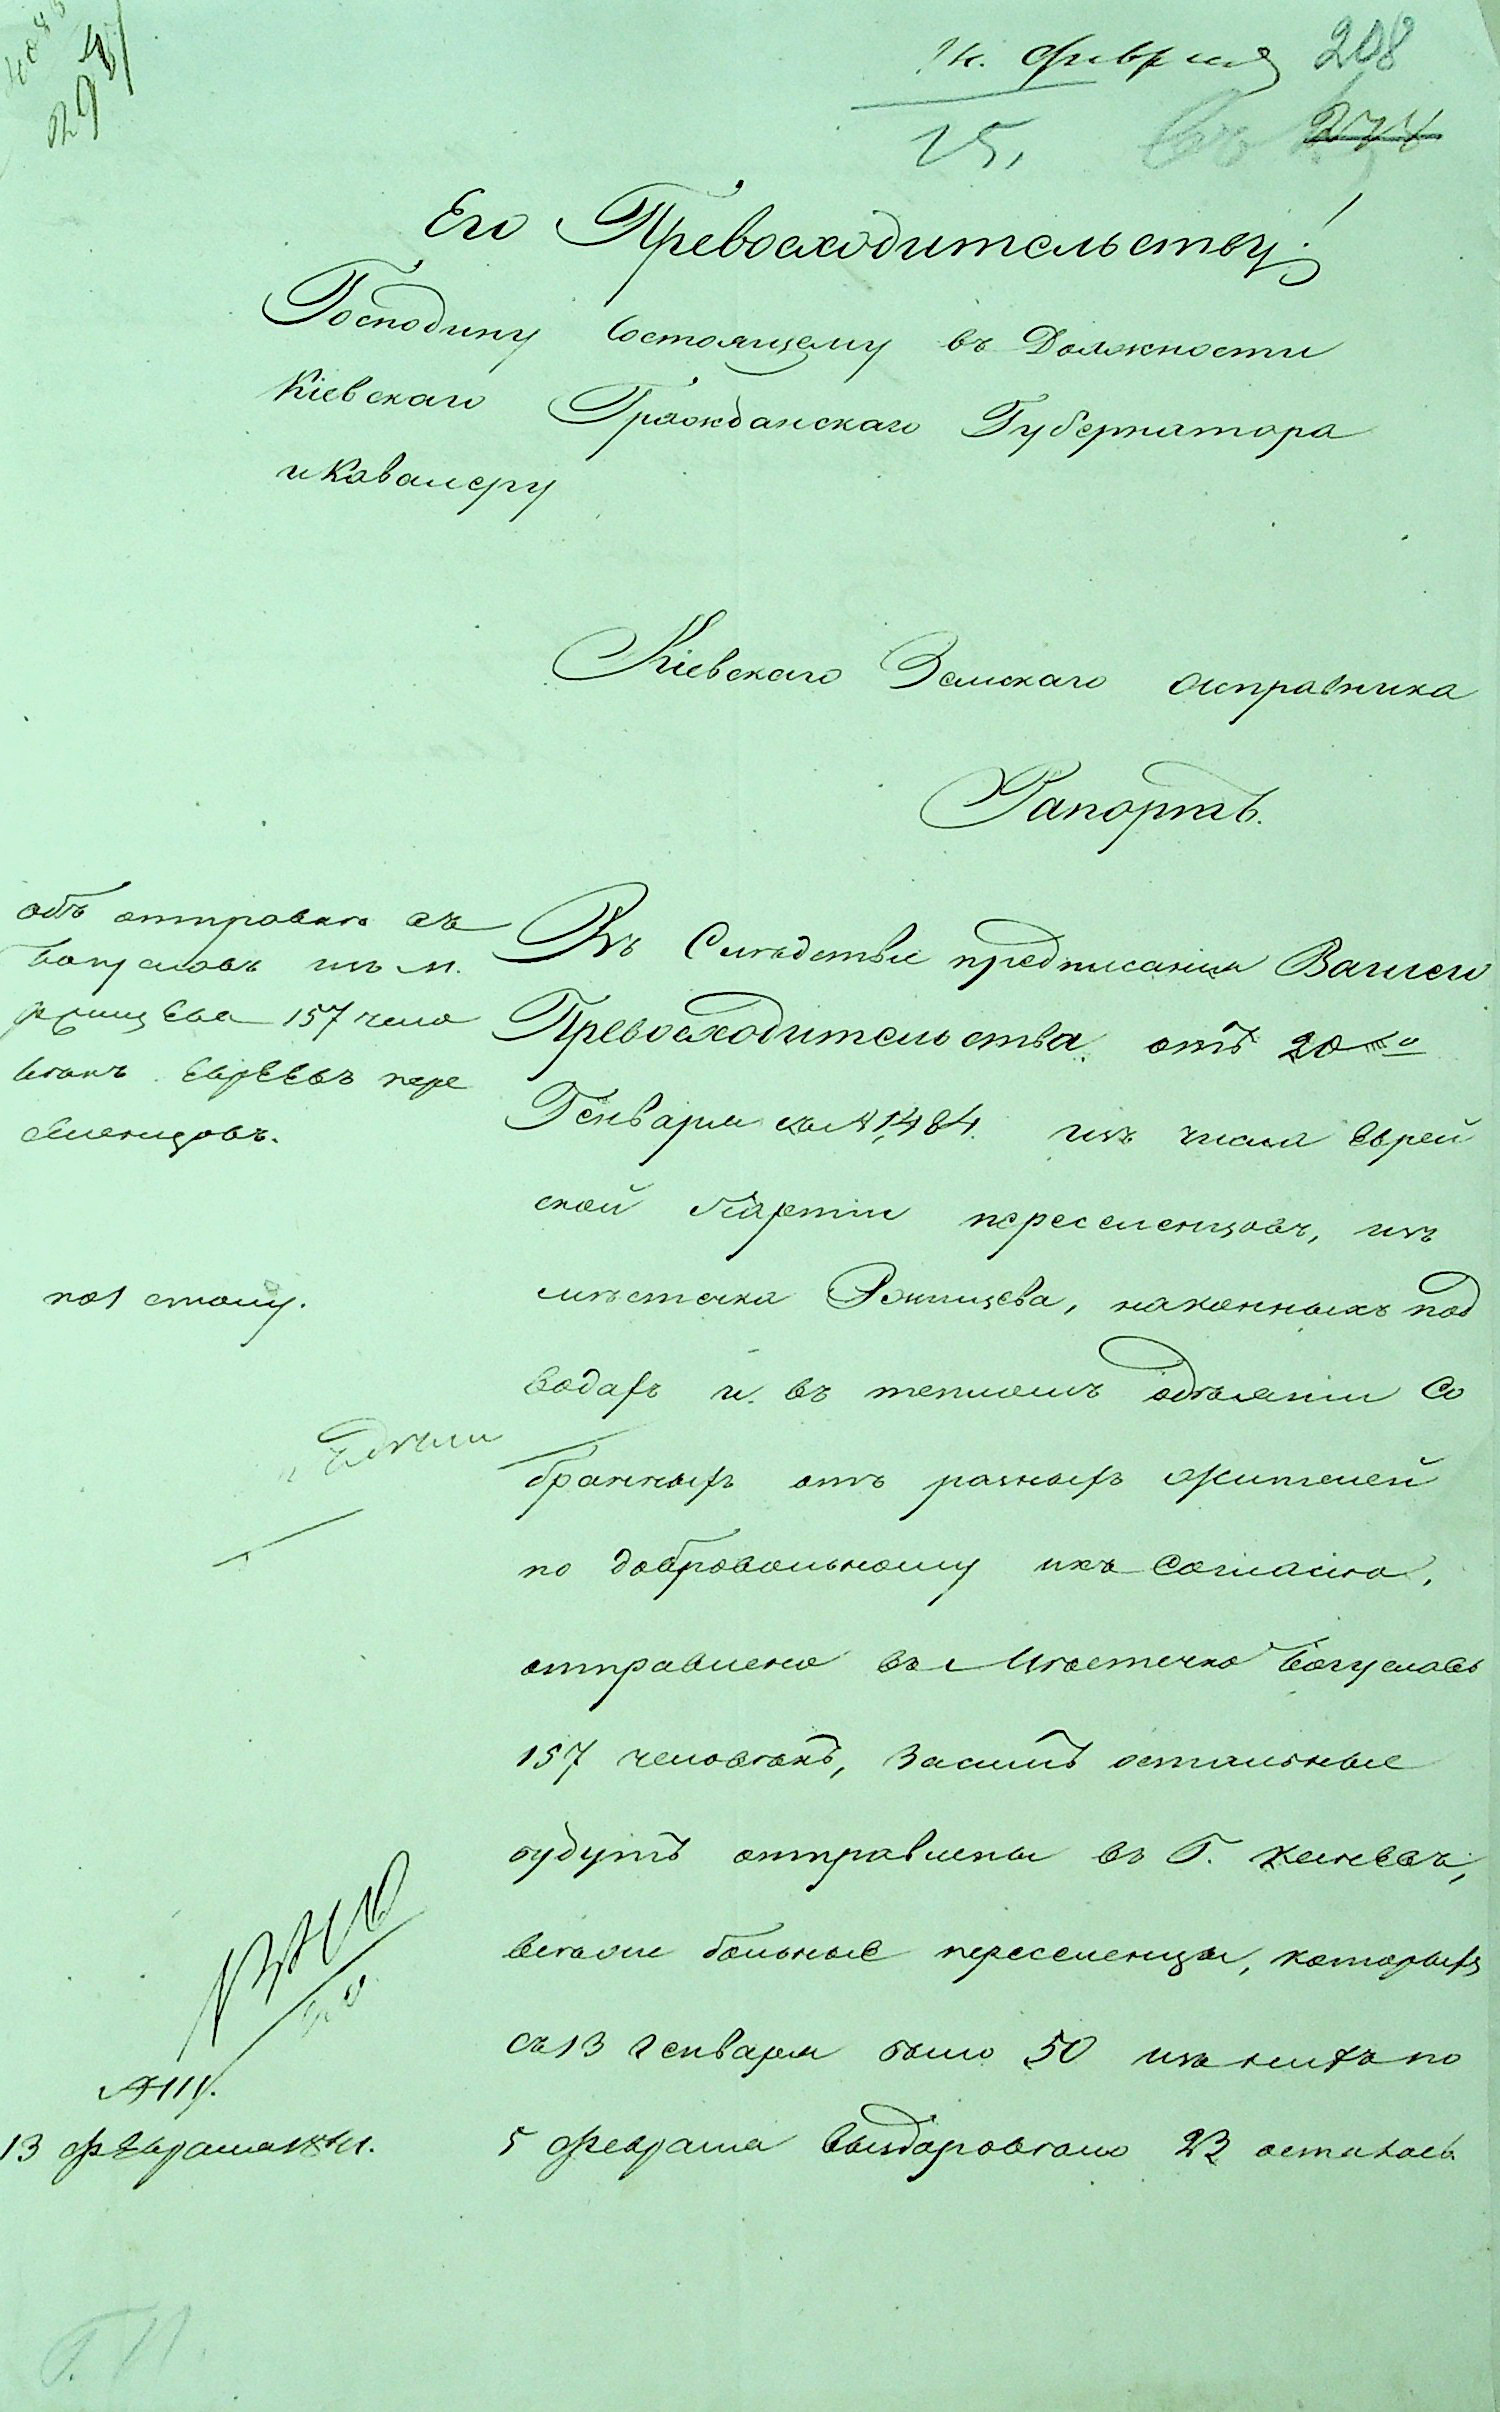 14. февраля 208
15.
Его Превосходительству!
Господину Состоящему въ Должности
Кіевскаго Гражданскаго Губернатора
и Кавалеру
Кіевскаго Земскаго исправника
Рапортъ.
объ отправке съ
Богуславъ изъ м.
Ржищева 157 чело
вѣкъ Евреевъ пере
селенцовъ.
Въ Слѣдствіе предписанія Вашего
Превосходительства отъ 20го
Генваря за № 1,484. изъ числа Еврей
ской Партіи переселенцовъ, изъ
мѣстечка Ржищева, на конныхъ под
водахъ и въ тепломъ одѣяніи со
бранныхъ отъ разныхъ жителей
по добровольному ихъ согласію,
отправлено въ Мѣстечко Богуславъ
157 человѣкъ, засимъ остальные
будутъ отправлены въ Г. Каневъ,
всѣ больные переселенцы, которыхъ
съ 13 генваря было 50 изъ нихъ по
5 февраля выздоровѣло 23 осталось
по 1 столу.
№ 111.
13 февраля 1841.